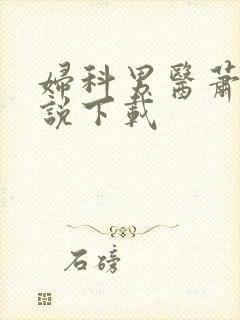 婦科男醫蕭
說下載
石磅